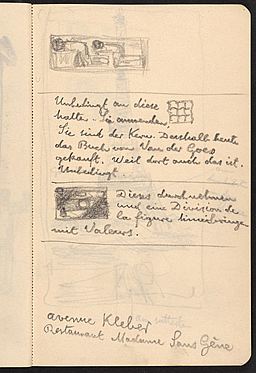 Unbedingt an diese
halten. Sie anwenden
Sie sind der Kern. Deshalb heute
das Buch von Van der Goes
gekauft. Weil dort auch das ist.
Unbedingt
Dieses durchnehmen
und eine Division de
la figure
mit Valeurs.
avenue Kleber
Restaurant Madame Sans Gène